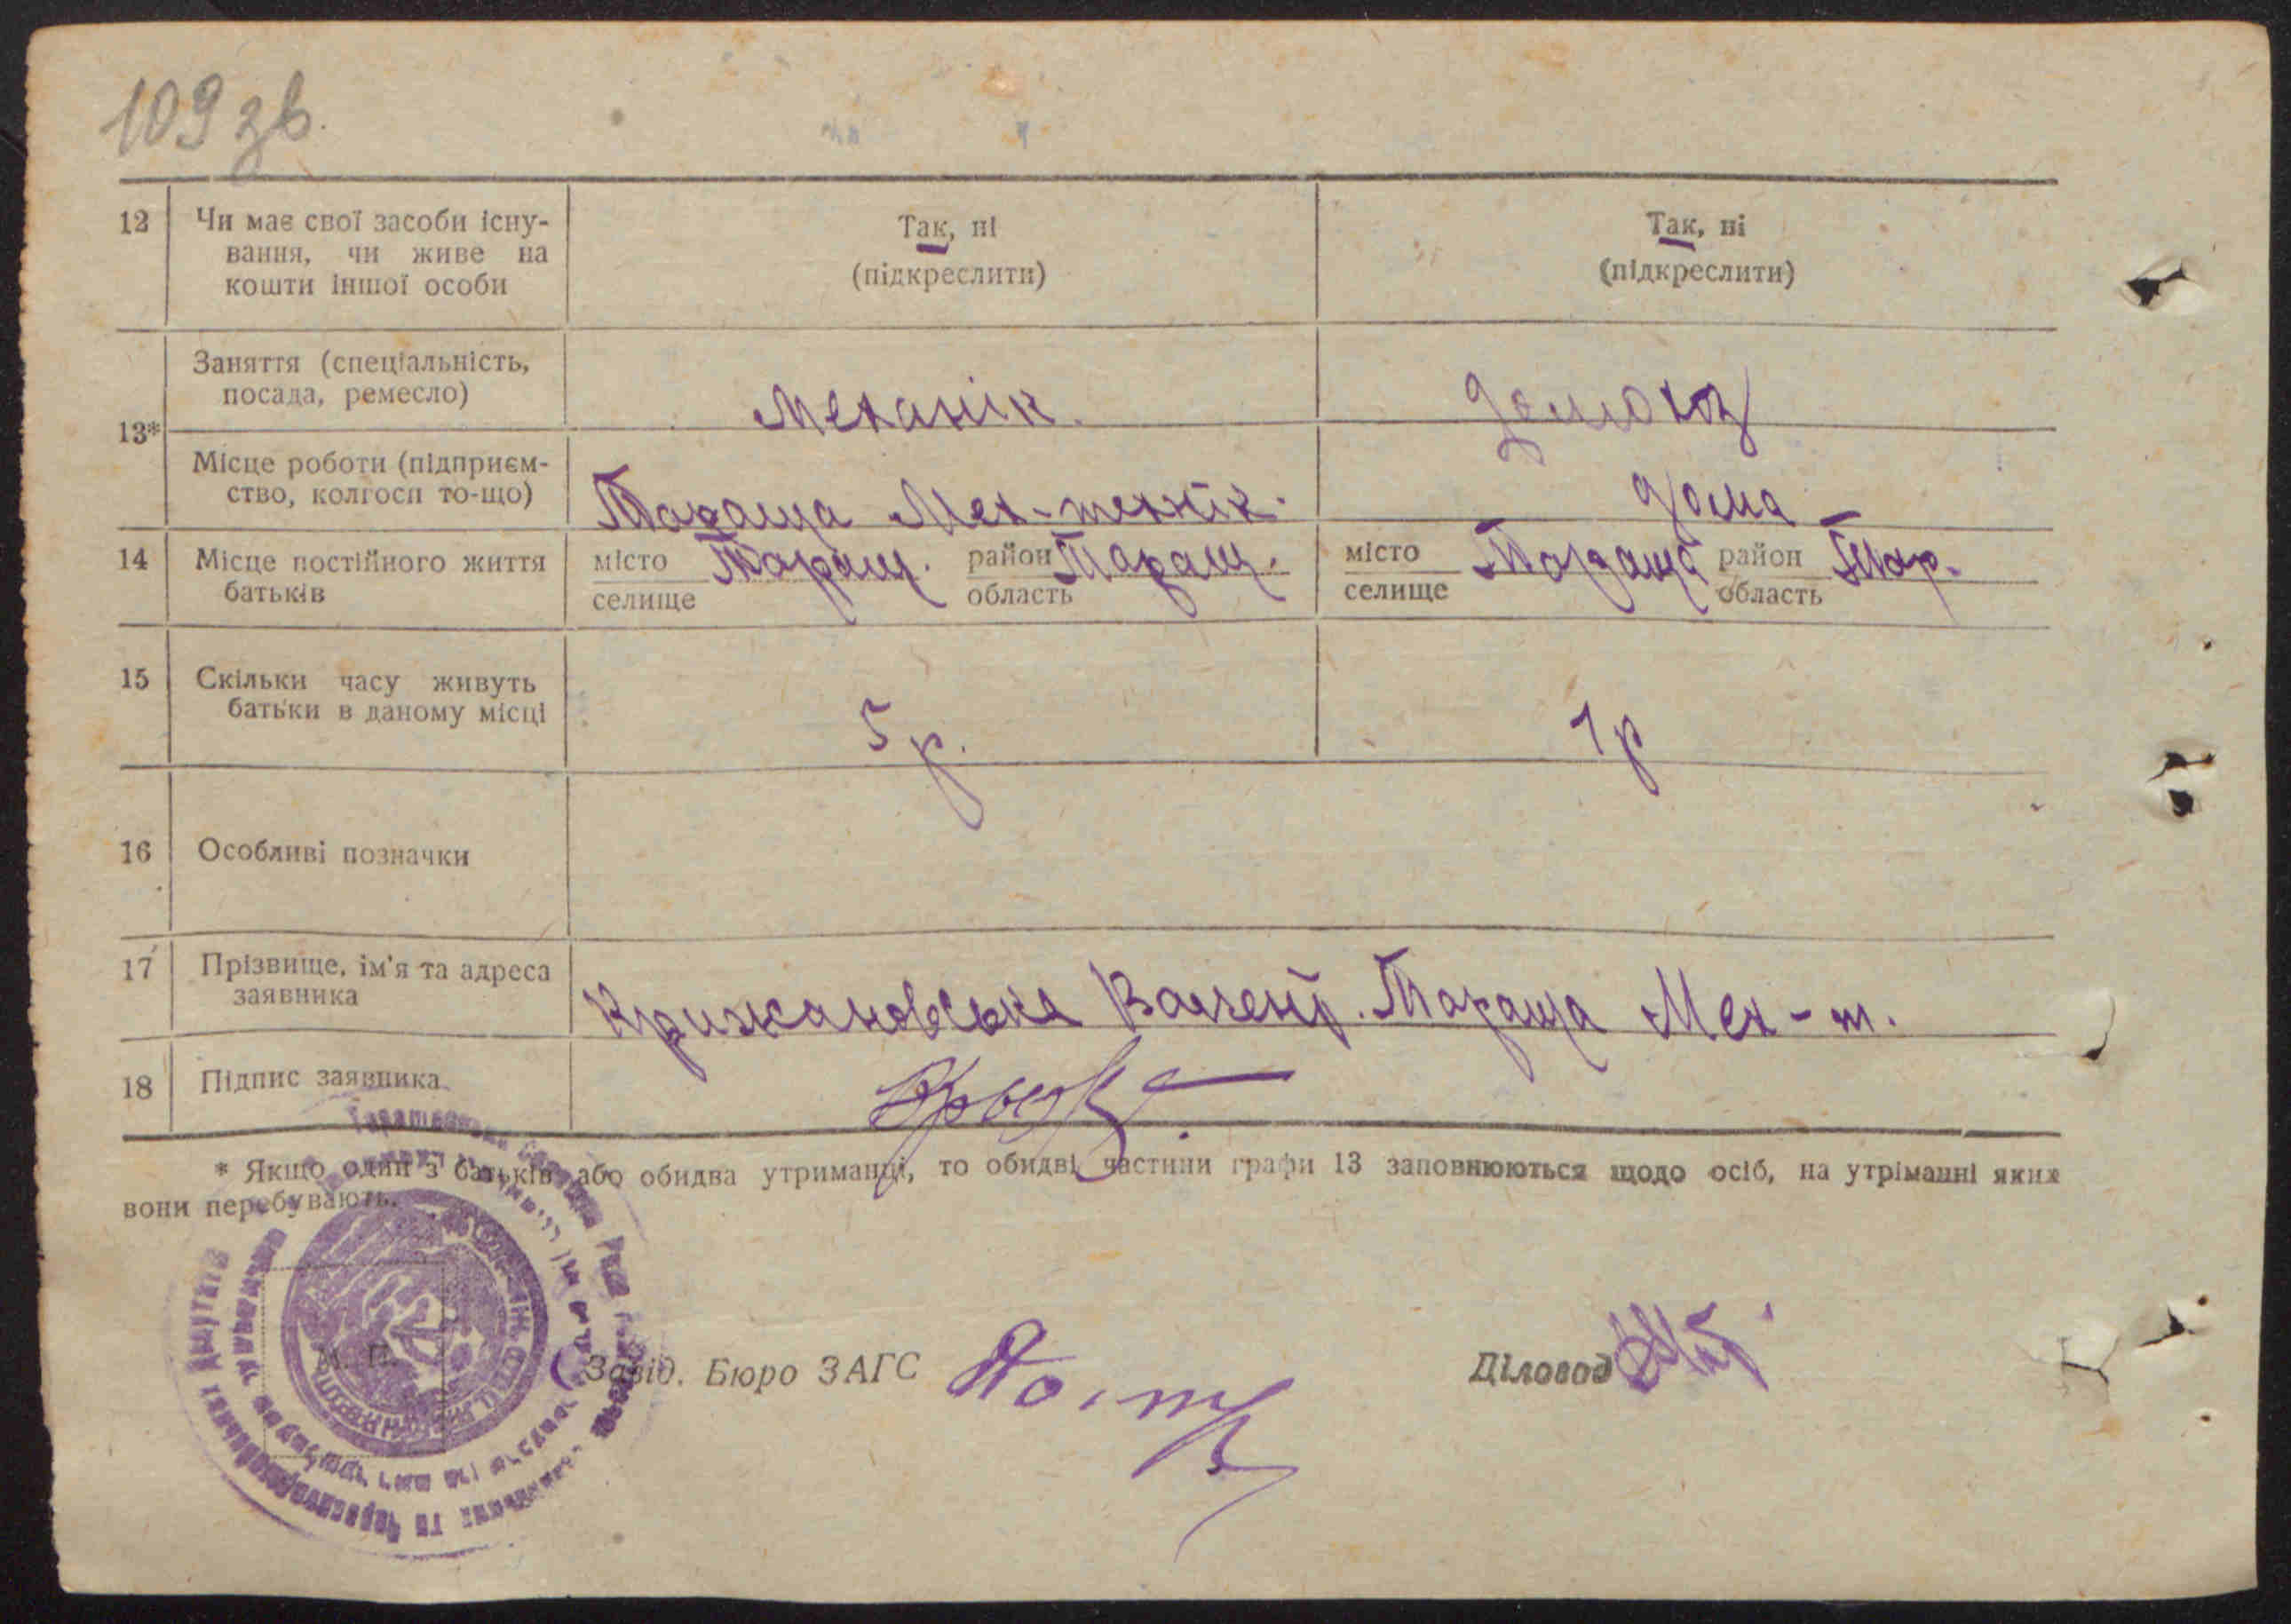 109 зв.
12 Чи має свої засоби існу- Так, ні Так, ні
вання, чи живе на (підкреслити) (підкреслити)
кошти іншої особи
Заняття (спеціальність,
посада, ремесло) Механік. домохоз
13*
Місце роботи (підприєм-
ство, колгосп то-що) Тараща Мех-технік. дома
14 Місце постійного життя місто Таращ. район Таращ. місто Тараща район Тар.
батьків селище область селище область
15 Скільки часу живуть
батьки в даному місці 5 р. 1 р
16 Особливі позначки
17 Прізвище, ім'я та адреса
заявника Крижановська Валент. Тараща Мех-т.
18 Підпис заявника
* Якщо один з батьків або обидва утриманці, то обидві частини графи 13 заповнюються щодо осіб, на утріманні яких
вони перебувають.
М. П.
Завід. Бюро ЗАГС Діловод